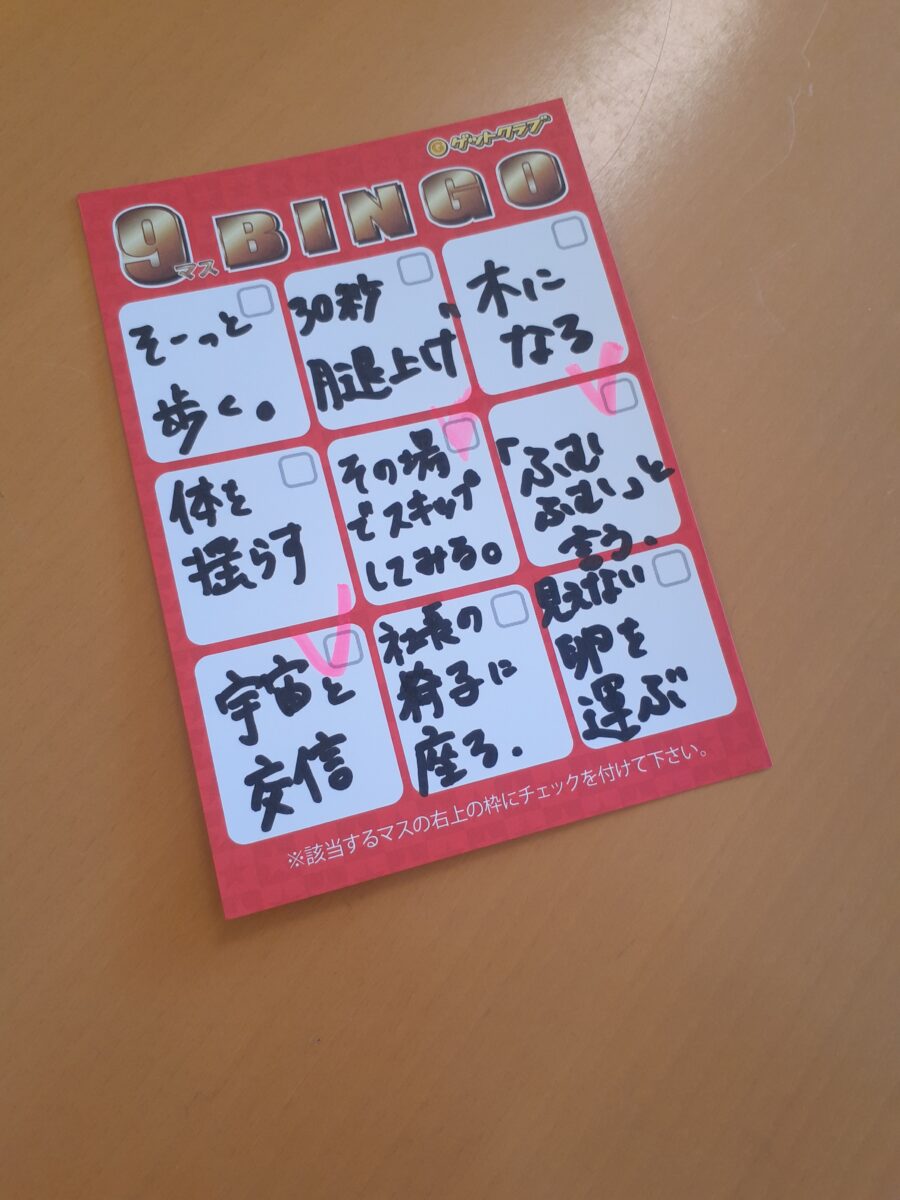 ゲットクラブ
9マス BINGO
そーっと
歩く。
30秒
腿上げ
木に
なる
体を
揺らす
その場
でスキップ
してみる。
「ふむ
ふむ」と
言う.
宇宙と
交信
社長の
椅子に
座る.
見えない
卵を
運ぶ
※該当するマスの右上の枠にチェックを付けて下さい。